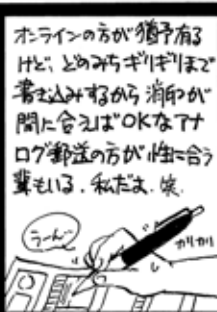 オンラインの方が猶予有る
けど、どのみちギリギリまで
書き込みするから消印が
間に合えばOKなアナ
ログ郵送の方が性に合う
輩もいる。私だよ。笑
うーん
カリカリ